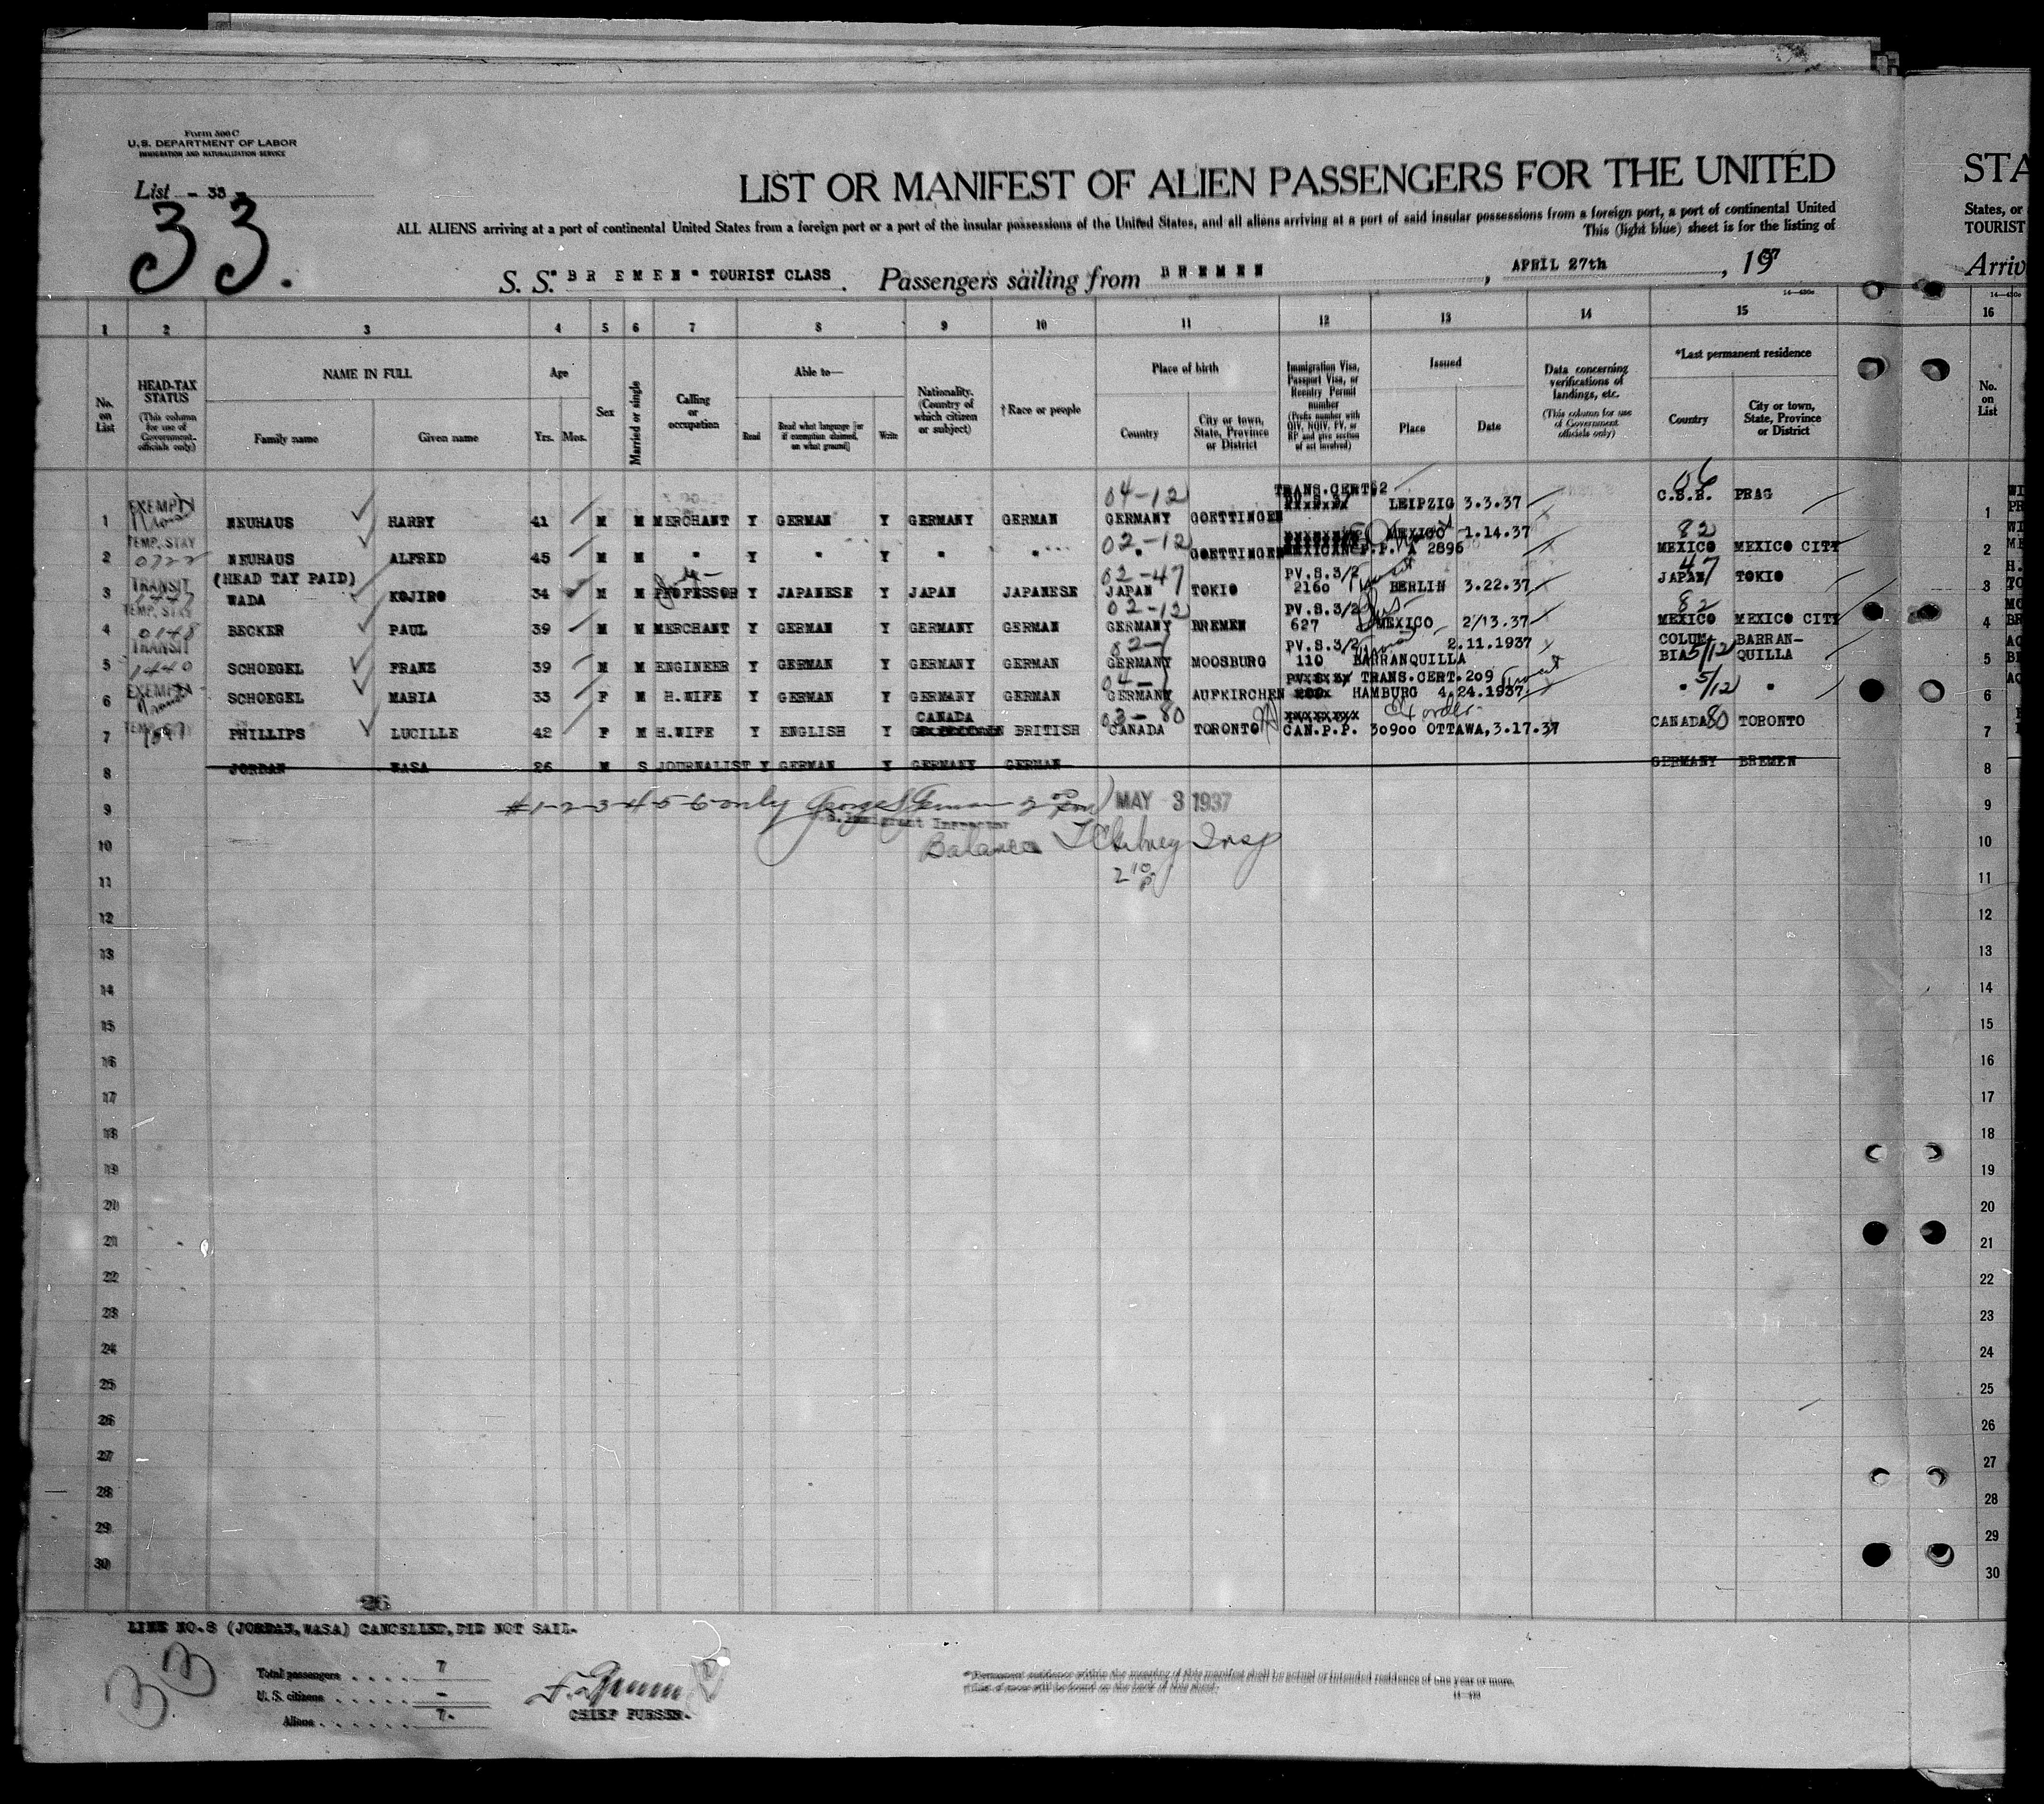 Form 500 C
U.S. DEPARTMENT OF LABOR
IMMIGRATION AND NATURALIZATION SERVICE
List - 33 -
33.
LIST OR MANIFEST OF ALIEN PASSENGERS FOR THE UNITED
STA
ALL ALIENS arriving at a port of continental United States from a foreign port or a port of the insular possessions of the United States, and all aliens arriving at a port of said insular possessions from a foreign port, a port of continental United
States, or
This (light blue) sheet is for the listing of
TOURIST
S. S. "BREMEN" TOURIST CLASS. Passengers sailing from BREMEN, APRIL 27th, 1937
Arriv
1 2 3 4 5 6 7 8 9 10 11 12 13 14 15 16
No. on List
HEAD-TAX STATUS (This column for use of Government officials only)
NAME IN FULL Family name Given name
Age Yrs. Mos.
Sex
Married or single
Calling or occupation
Able to— Read Read what language [or if exemption claimed, on what ground] Write
Nationality. (Country of which citizen or subject)
†Race or people
Place of birth Country City or town, State, Province or District
Immigration Visa, Passport Visa, or Reentry Permit number (Prefix number with QIV, NQIV, PV, or RP and give section of act involved)
Issued Place Date
Data concerning verifications of landings, etc. (This column for use of Government officials only)
*Last permanent residence Country City or town, State, Province or District
No. on List
EXEMPT 04-12 TRANS.CERT 62 06
1 NEUHAUS HARRY 41 M M MERCHANT Y GERMAN Y GERMANY GERMAN GERMANY GOETTINGEN LEIPZIG 3.3.37 C.S.R. PRAG 1
TEMP. STAY 02-12 MEXICO 1.14.37 82
2 0722 NEUHAUS ALFRED 45 M M " Y " Y " " " GOETTINGEN MEXICAN P.P. A 2896 MEXICO MEXICO CITY 2
TRANSIT (HEAD TAY PAID) 02-47 PV.S.3/2 47
3 WADA KOJIRO 34 M M PROFESSOR Y JAPANESE Y JAPAN JAPANESE JAPAN TOKIO 2160 BERLIN 3.22.37 JAPAN TOKIO 3
TEMP. STAY 02-12 PV.S.3/2 82
4 0148 BECKER PAUL 39 M M MERCHANT Y GERMAN Y GERMANY GERMAN GERMANY BREMEN 627 MEXICO 2/13.37 MEXICO MEXICO CITY 4
TRANSIT 02- PV.S.3/2 2.11.1937 COLUM- BARRAN-
5 1440 SCHOEGEL FRANZ 39 M M ENGINEER Y GERMAN Y GERMANY GERMAN GERMANY MOOSBURG 110 BARRANQUILLA BIA 5/12 QUILLA 5
EXEMPT 04- TRANS.CERT.209
6 SCHOEGEL MARIA 33 F M H.WIFE Y GERMAN Y GERMANY GERMAN GERMANY AUFKIRCHEN HAMBURG 4.24.1937 " 5/12 " 6
CANADA 03-80
7 PHILLIPS LUCILLE 42 F M H.WIFE Y ENGLISH Y BRITISH CANADA TORONTO CAN.P.P. 30900 OTTAWA,3.17.37 CANADA 80 TORONTO 7
8 JORDAN WASA 26 M S JOURNALIST Y GERMAN Y GERMANY GERMAN GERMANY BREMEN 8
9 #1-2-3-4-5-6 only MAY 3 1937 9
Immigrant Inspector
10 Balance Insp 10
11 11
12 12
13 13
14 14
15 15
16 16
17 17
18 18
19 19
20 20
21 21
22 22
23 23
24 24
25 25
26 26
27 27
28 28
29 29
30 30
26
LINE NO.8 (JORDAN,WASA) CANCELLED,DID NOT SAIL.
33
Total passengers . . . . 7
U. S. citizens . . . . . -
Aliens . . . . . . 7.
CHIEF PURSER.
*Permanent residence within the meaning of this manifest shall be actual or intended residence of one year or more.
†List of races will be found on the back of this sheet.